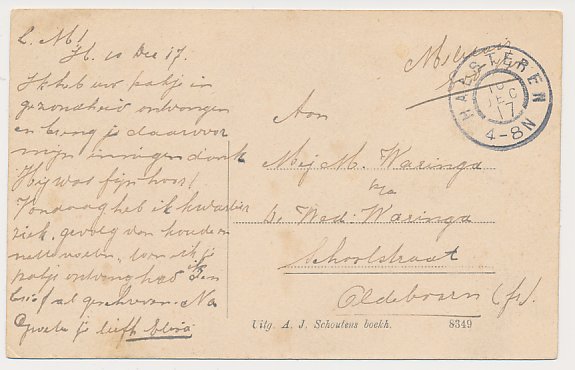 L. M!
H. 10 Dec 17.
Ik heb uw pakje in
gezondheid ontvangen
en breng je daarvoor
mijn innigen dank
Hij was fijn hoor!
Vandaag heb ik kwartier
ziek, gevolg van koude en
natte voeten, toen ik je
pakje ontving heb
brief al geschreven. Na
Groete je liefh.
Militair
HALSTEREN
10
DEC
17
4-8N
Aan
Mej M. Waringa
p/a
de Wed. Waringa
Schoolstraat
Oldeboorn (fr).
Uitg. A. J. Schoutens boekh. 8349